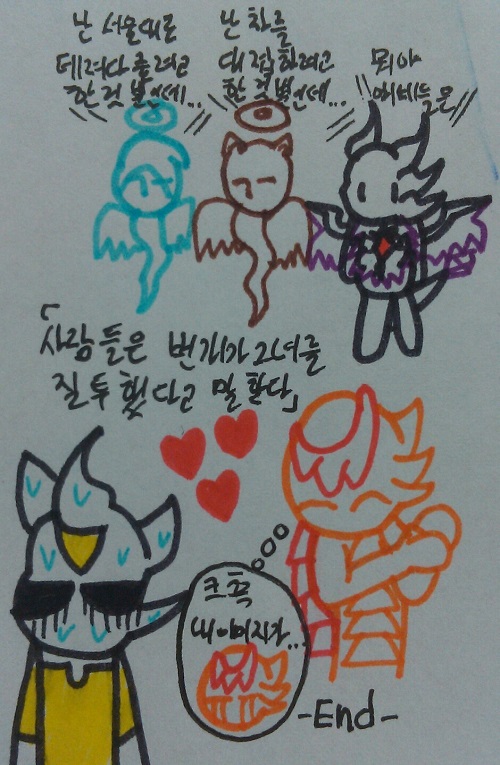 난 서울대로
데려다 줄려고
한 것 뿐인세...
난 차를
대접 할려고
한 것 뿐인세...
뭐야
이네들은
「사람들은 번개가 그녀를
질투했다고 말한다」
크흑
내 이미지가...
-End-